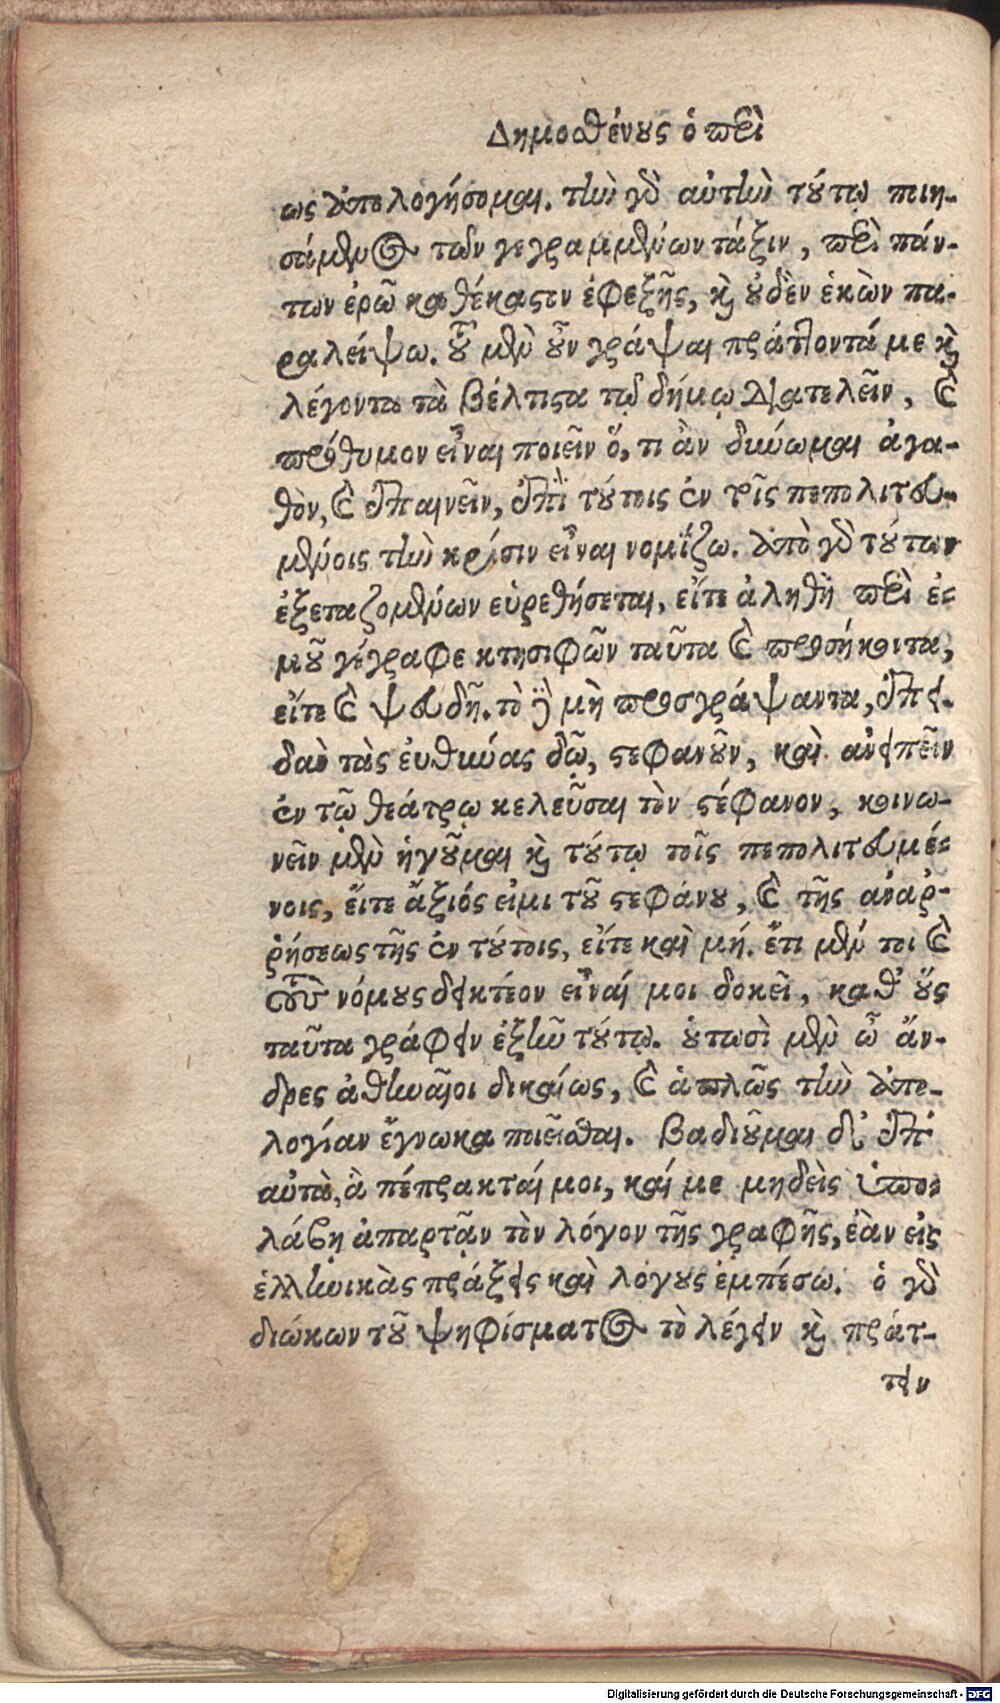 Δημοσθένους ὁ περὶ
ως ἀπολογήσομαι. τὴν γὸ αὐτὴν τούτῳ ποιη-
σάμενος τῶν γεγραμμένων τάξιν, περὶ πάν-
των ἐρῶ καθέκαστον ἐφεξῆς, καὶ οὐδὲν ἑκὼν πα-
ραλείψω. τοῦ μὲν οὖν γράψαι πράττοντά με καὶ
λέγοντα τὰ βέλτιστα τῷ δήμῳ διατελεῖν, καὶ
πρόθυμον εἶναι ποιεῖν ὅ, τι ἂν δύνωμαι ἀγα-
θὸν, καὶ ἐπαινεῖν, ἐπὶ τούτοις ἐν τοῖς πεπολιτευ-
μένοις τὴν κρίσιν εἶναι νομίζω. ἀπὸ γὰρ τούτων
ἐξεταζομένων εὑρεθήσεται, εἴτε ἀληθῆ περὶ ἐ-
μοῦ γέγραφε κτησιφῶν ταῦτα καὶ προσήκοντα,
εἴτε καὶ ψευδῆ. τὸ δὲ μὴ προσγράψαντα, ἐπει-
δὰν τὰς εὐθύνας δῷ, στεφανοῦν, καὶ ἀνειπεῖν
ἐν τῷ θεάτρῳ κελεῦσαι τὸν στέφανον, κοινω-
νεῖν μὲν ἡγοῦμαι καὶ τούτῳ τοῖς πεπολιτευμέ-
νοις, εἴτε ἄξιός εἰμι τοῦ στεφάνου, καὶ τῆς ἀναρ-
ρήσεως τῆς ἐν τούτοις, εἴτε καὶ μή. ἔτι μέν τοι καὶ
τοὺς νόμους δεικτέον εἶναί μοι δοκεῖ, καθ' οὓς
ταῦτα γράφειν ἐξῆν τούτῳ. οὑτωσὶ μὲν ὦ ἄν-
δρες ἀθηναῖοι δικαίως, καὶ ἁπλῶς τὴν ἀπο-
λογίαν ἔγνωκα ποιεῖσθαι. Βαδιοῦμαι δ' ἐπ'
αὐτὰ, ἃ πέπρακταί μοι, καί με μηδεὶς ὑπο-
λάβῃ ἀπαρτᾷν τὸν λόγον τῆς γραφῆς, ἐὰν εἰς
ἑλληνικὰς πράξεις καὶ λόγους ἐμπέσω. ὁ γὰρ
διώκων τοῦ ψηφίσματος τὸ λέγειν καὶ πράτ-
τειν
Digitalisierung gefördert durch die Deutsche Forschungsgemeinschaft - DFG